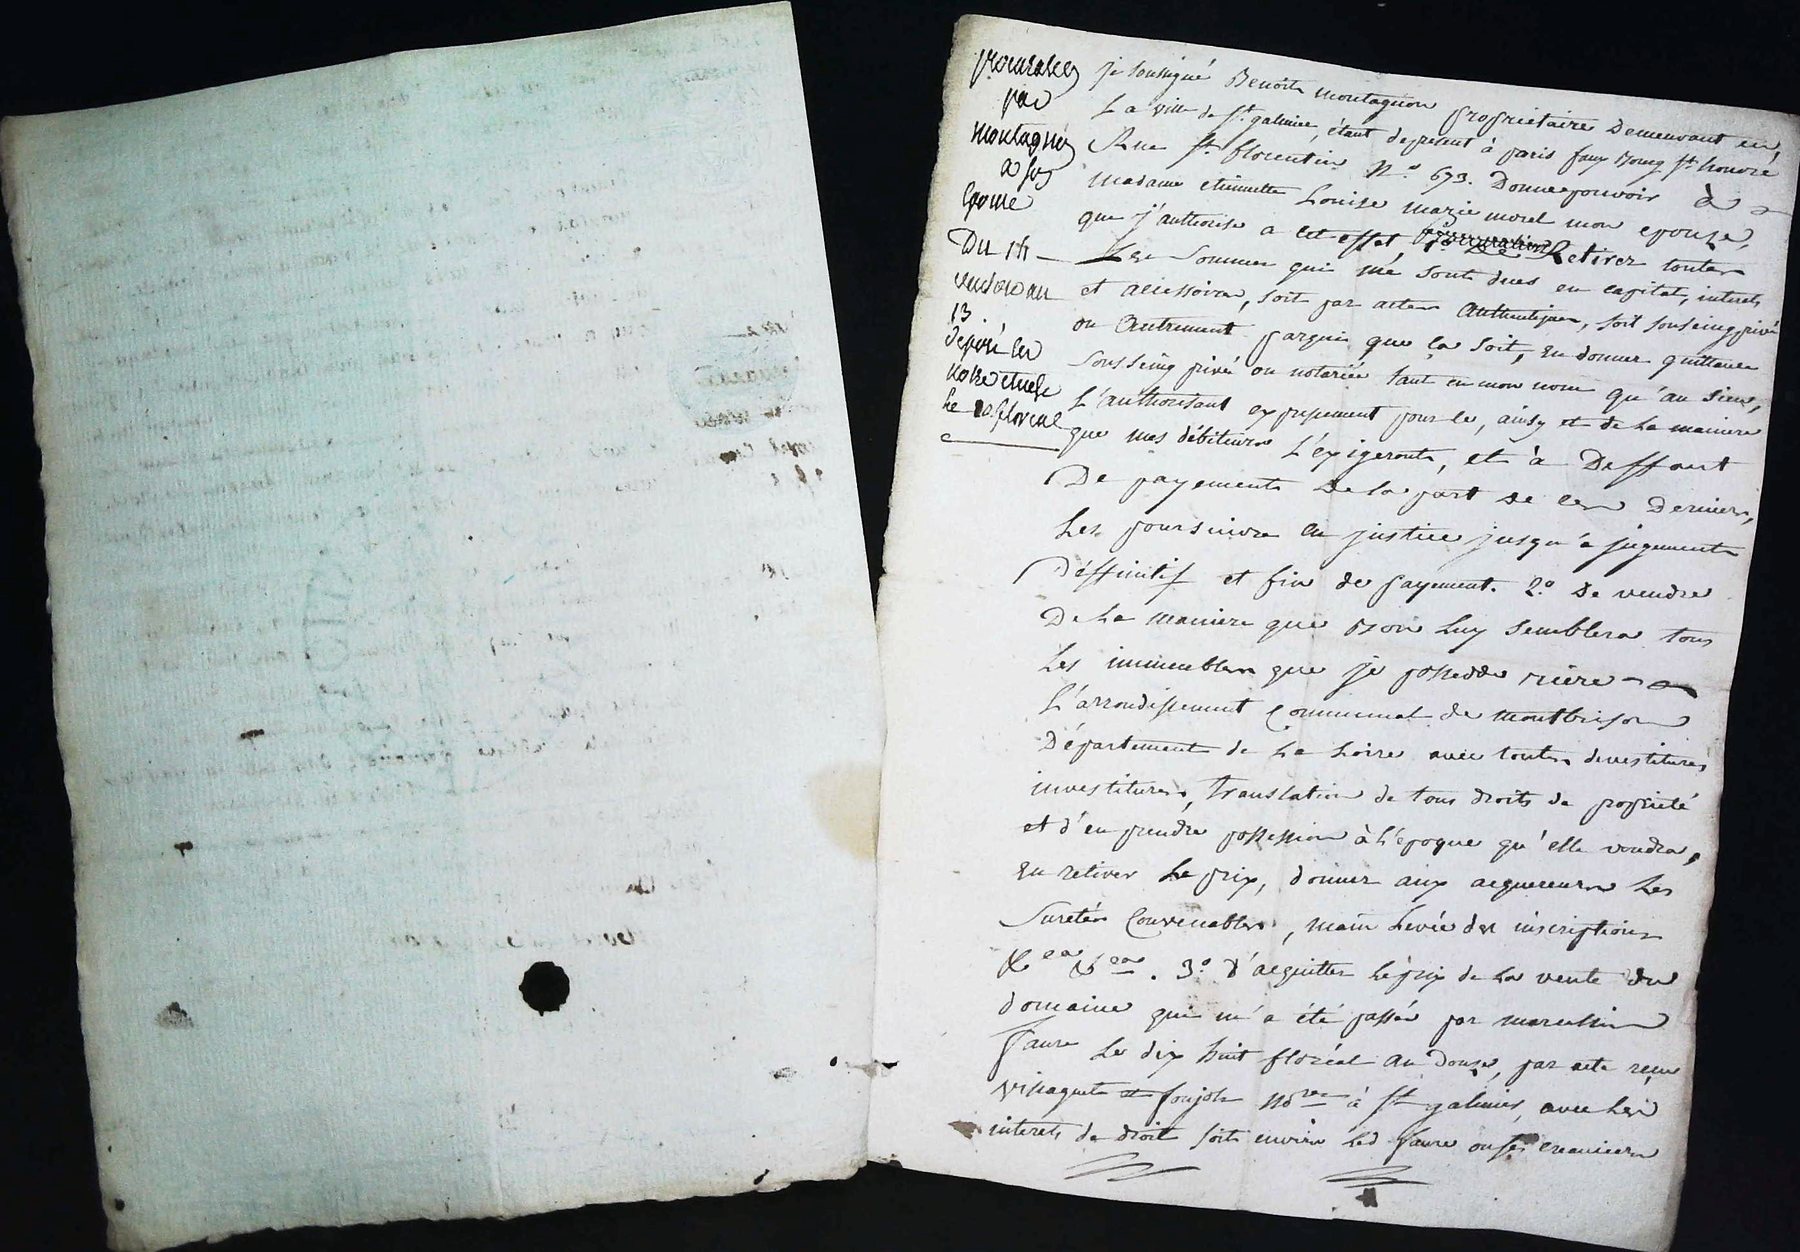 procuration
par
montagnon
a son
epouse
Du 14
vendre an
13.
déposé ches
notre étude
le 20 floreal
je soussigné Benoit montagnon proprietaire Demeurant en
La ville de St. galmier, étant de present à paris faux Bourg St honoré
Rue St. florentin N.o 673. Donne pouvoir à
madame etiennette Louise marie morel mon epouse,
que j'authorise a cet effet, 1.o De Retirer toutes
Les Sommes qui me sont dues en capital, interets
et accessoires, soit par actes authentiques, soit sous seing privé
ou autrement par qui que ça soit, en donner quittance
sous seing privé ou notariée tant en mon nom qu'au sien,
L'authorisant expressement pour ce, ainsy et de la maniere
que mes débiteurs L'éxigeronts, et à Deffaut
De payements de la part de ces Derniers,
Les poursuivre en justice jusqu'a jugements
Déffinitif et fin de payement. 2.o De vendre
De La maniere que Bon Luy semblera tous
Les immeubles que je possedde rière
L'arrondissement Communal de montbrison
Département de La Loire avec toutes devestitures
investitures, translation de tous droits de propriété
et d'en prendre possession à l'epoque qu'elle voudra,
En retirer Le prix, donner aux acquereurs Les
Suretés Convenables, main Levée des inscriptions
&ca &ca. 3.o D'acquitter Le prix de La vente du
domaine qui m'a été passée par marcellin
faure Le dix huit floréal an Douze, par acte reçu
vissaguet et foujols nores à St galmier, avec Les
interets de droit soit envers Led faure ou ses creanciers